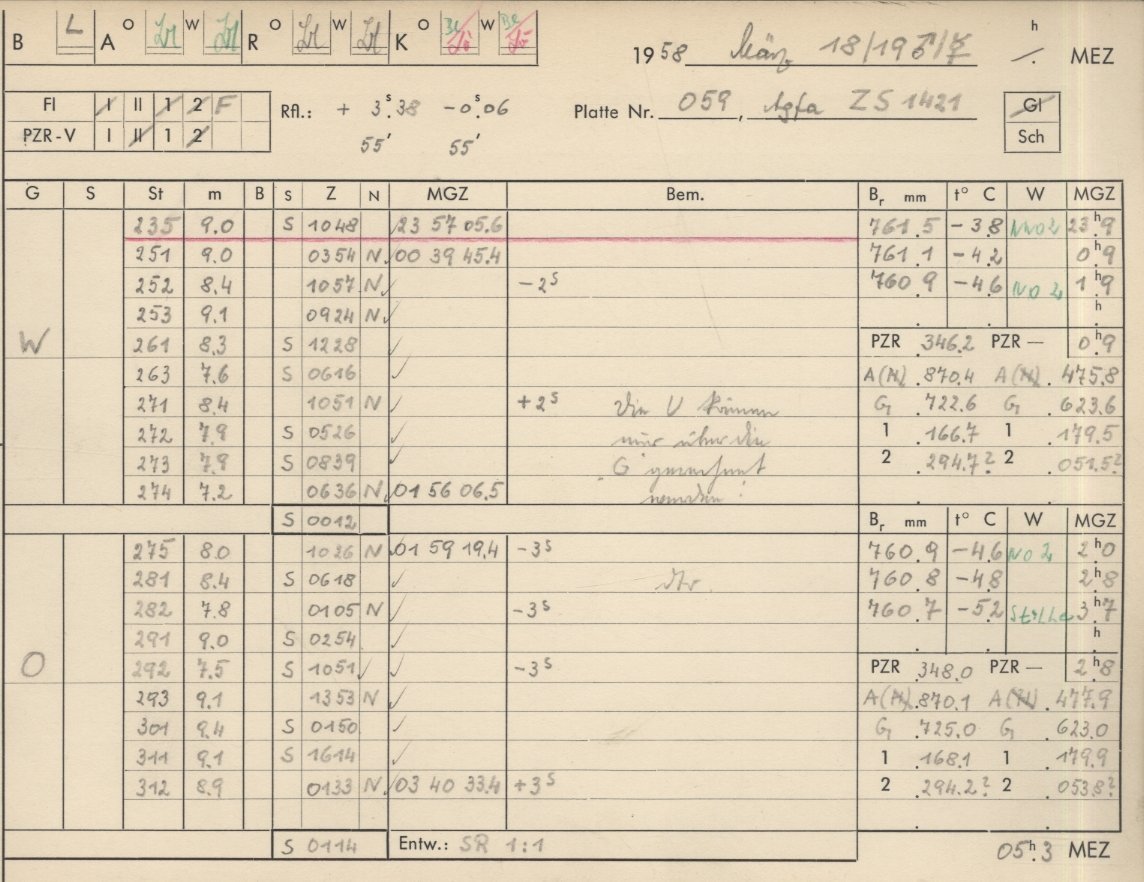 B L A O W R O W K O W
1958 März 18/19 ♂/☿ h MEZ
Fl I II 1 2 F
PZR-V I II 1 2
Rfl.: + 3ˢ.38 -0ˢ.06
55' 55'
Platte Nr. 059, Agfa ZS 1421
Gl
Sch
G S St m B S Z N MGZ Bem. Bᵣ mm t° C W MGZ
235 9.0 S 1048 23 57 05.6 761.5 -3.8 NNO2 23ʰ.9
251 9.0 0354 N 00 39 45.4 761.1 -4.2 0ʰ.9
252 8.4 1057 N ✓ -2ˢ 760.9 -4.6 NO 2 1ʰ.9
253 9.1 0924 N ✓ h
W 261 8.3 S 1228 ✓ PZR .346.2 PZR — 0ʰ.9
263 7.6 S 0616 ✓ A(M) .870.4 A(M) .475.8
271 8.4 1051 N ✓ +2ˢ Die V können G .722.6 G .623.6
272 7.9 S 0526 ✓ nur über die 1 .166.7 1 .179.5
273 7.9 S 0839 ✓ G gerechnet 2 .294.7? 2 .051.5?
274 7.2 0636 N 01 56 06.5 werden!
S 0012 Bᵣ mm t° C W MGZ
275 8.0 1026 N 01 59 19.4 -3ˢ 760.9 -4.6 NO 2 2ʰ.0
281 8.4 S 0618 ✓ dto. 760.8 -4.8 2ʰ.8
282 7.8 0105 N ✓ -3ˢ 760.7 -5.2 Stille 3ʰ.7
291 9.0 S 0254 ✓ h
O 292 7.5 S 1051 ✓ -3ˢ PZR .348.0 PZR — 2ʰ.8
293 9.1 1353 N ✓ A(M) .870.1 A(M) .477.9
301 9.4 S 0150 ✓ G .725.0 G .623.0
311 9.1 S 1614 ✓ 1 .168.1 1 .179.9
312 8.9 0133 N 03 40 33.4 +3ˢ 2 .294.2? 2 .053.8?
S 0114 Entw.: SR 1:1 05ʰ.3 MEZ